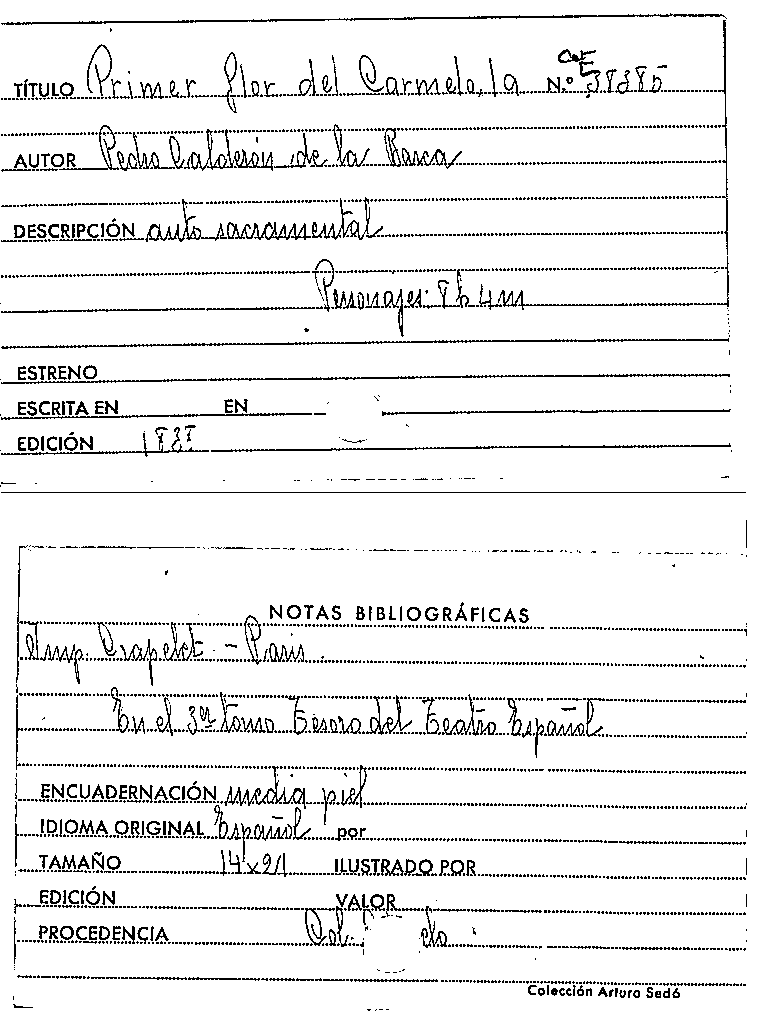 TÍTULO Primer flor del Carmelo, la N.º 38385
AUTOR Pedro Calderón de la Barca
DESCRIPCIÓN auto sacramental
Personajes: 8 h 4 m
ESTRENO
ESCRITA EN EN
EDICIÓN 1838
NOTAS BIBLIOGRÁFICAS
Imp. Crapelet - Paris.
En el 3er tomo Tesoro del Teatro Español
ENCUADERNACIÓN media piel
IDIOMA ORIGINAL Español por
TAMAÑO 14x21 ILUSTRADO POR
EDICIÓN VALOR
PROCEDENCIA Col.
Colección Arturo Sedó